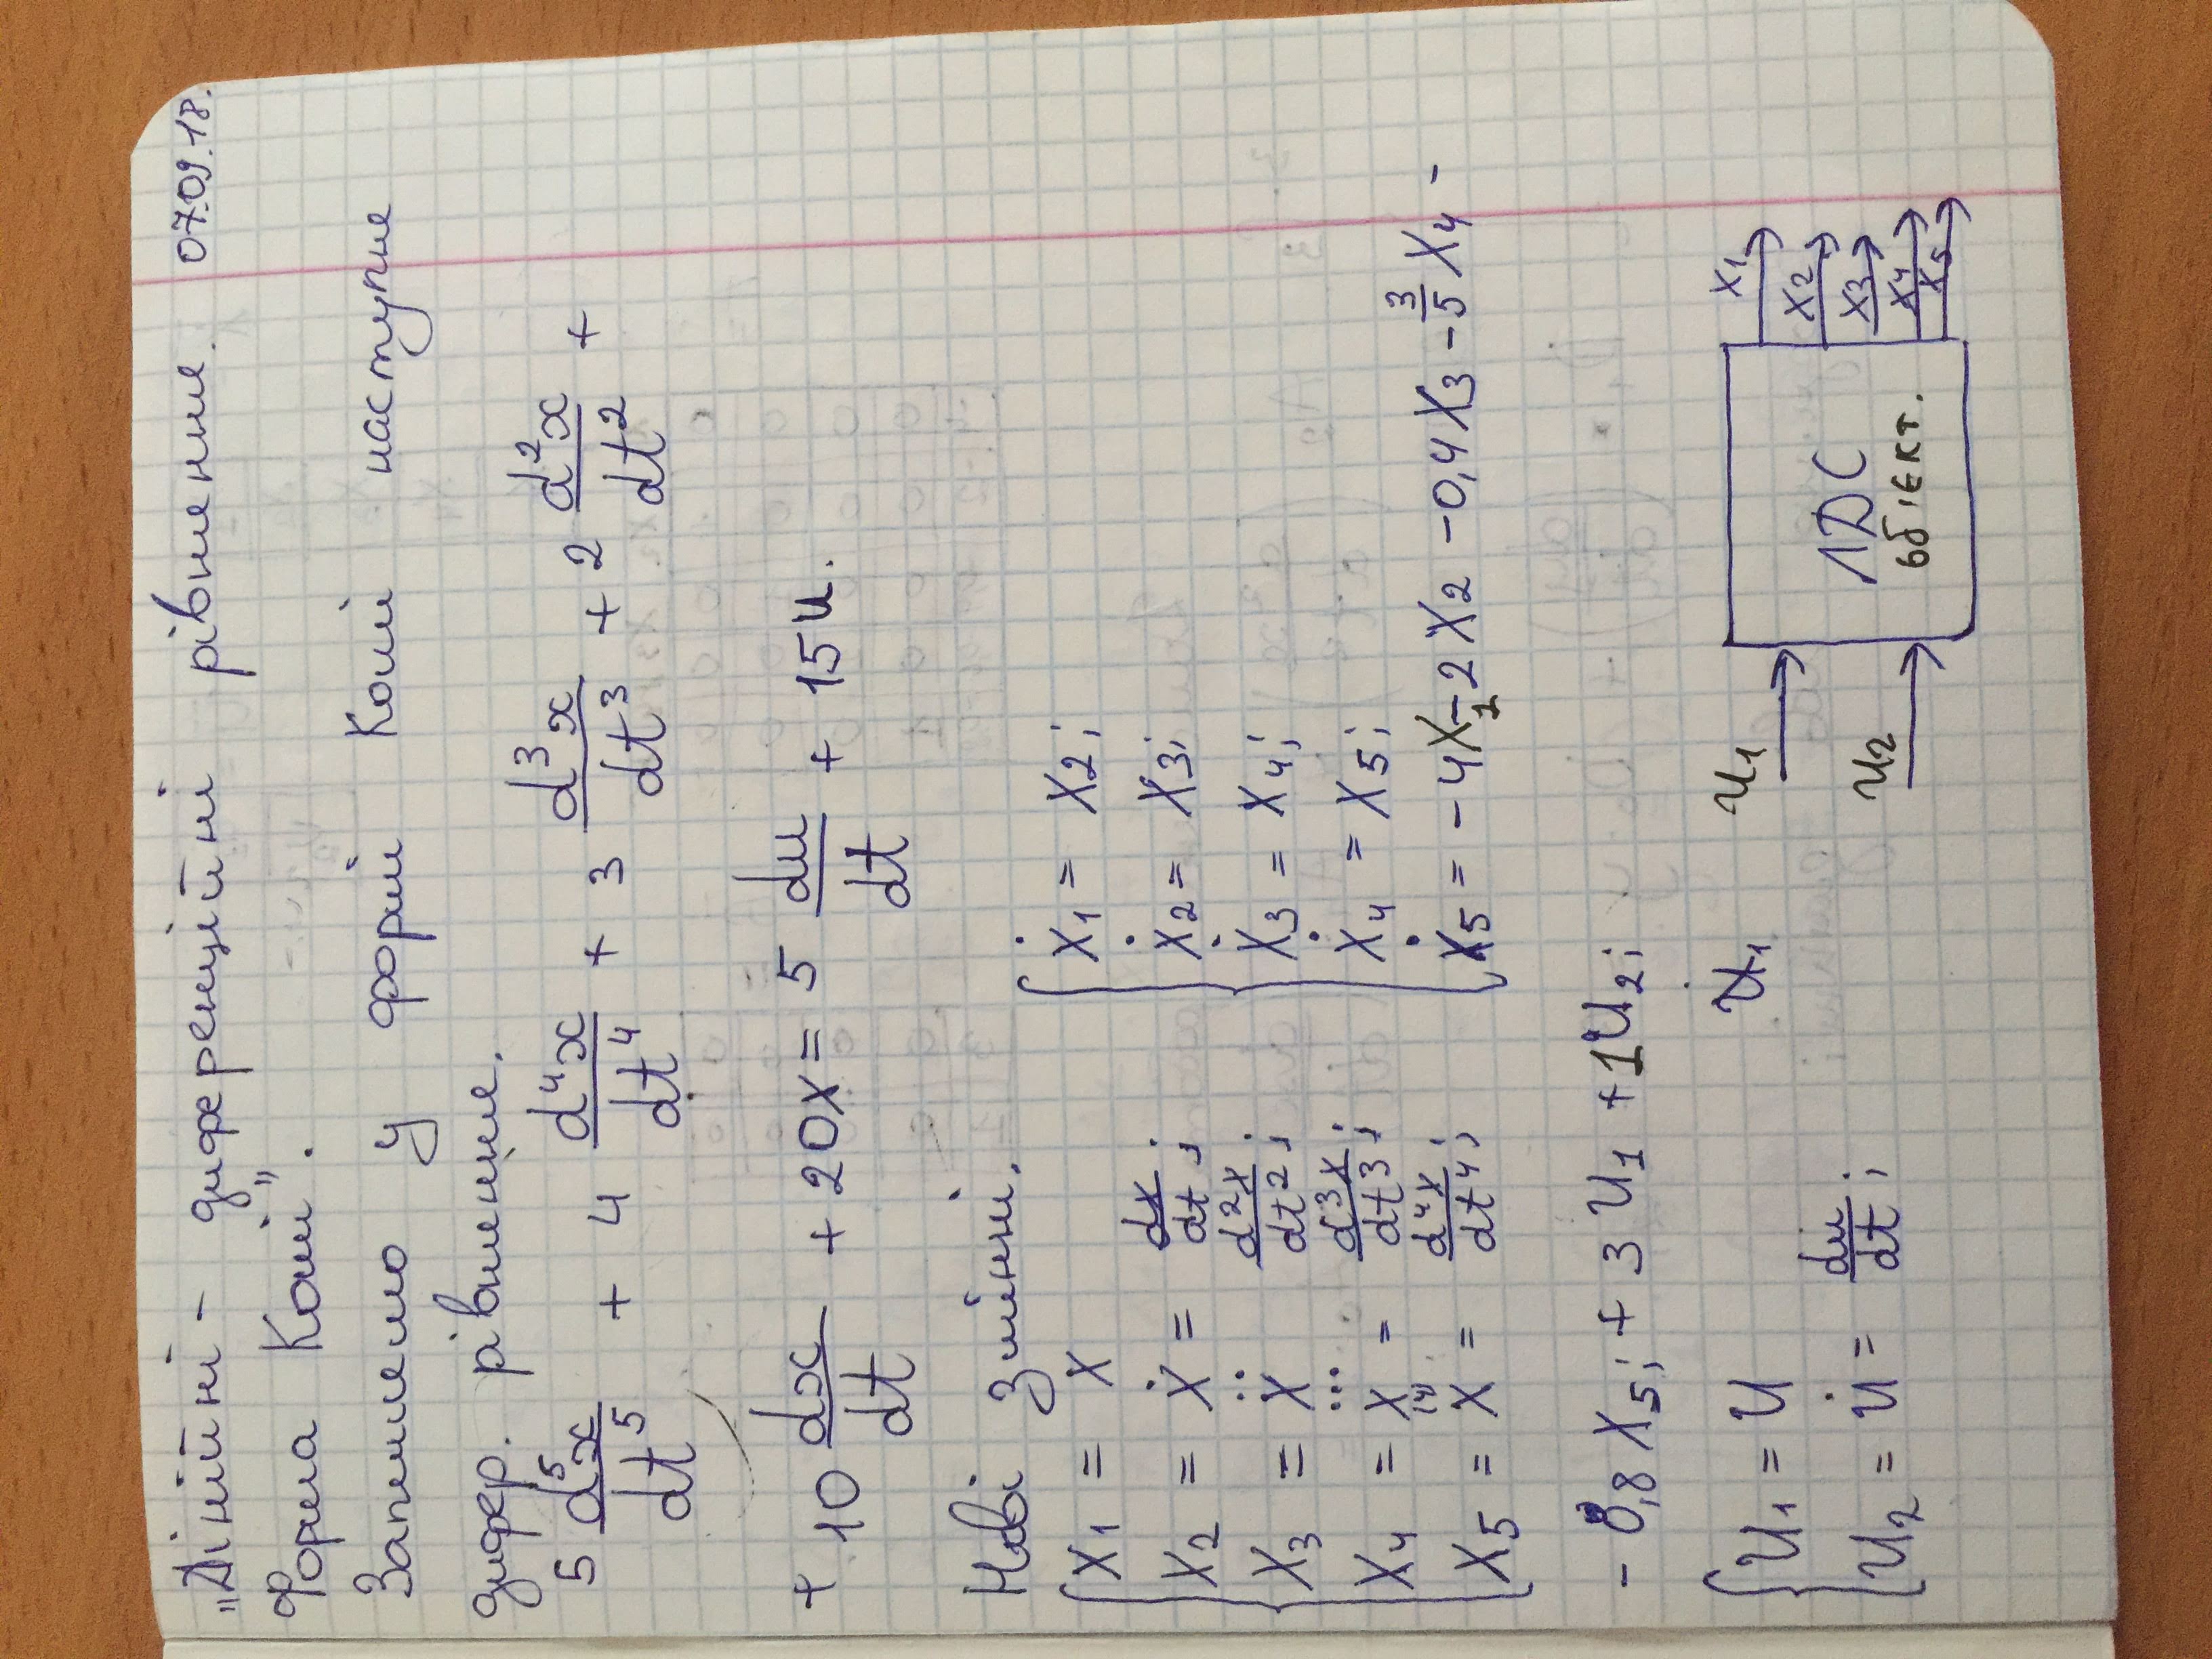 „Лінійні - диференційні рівняння. 07.09.18.
Форма Коші".
Запишемо у формі Коші наступне
дифер. рівняння.
5 d⁵x/dt⁵ + 4 d⁴x/dt⁴ + 3 d³x/dt³ + 2 d²x/dt² +
+ 10 dx/dt + 20x = 5 du/dt + 15u.
Нові змінні.
x₁ = x
x₂ = ẋ = dx/dt;
x₃ = ẍ d²x/dt²;
x₄ = x⃛ = d³x/dt³;
x₅ = x⁽⁴⁾ = d⁴x/dt⁴;
ẋ₁ = x₂;
ẋ₂ = x₃;
ẋ₃ = x₄;
ẋ₄ = x₅;
ẋ₅ = -4x₁ -2x₂ -0,4x₃ - 3/5 x₄ -
- 0,8 x₅; + 3 u₁ + 1u₂;
u₁ = u
u₂ = u̇ = du/dt;
u̇₁
u₁
u₂
ЛДС
обієкт.
x₁
x₂
x₃
x₄
x₅